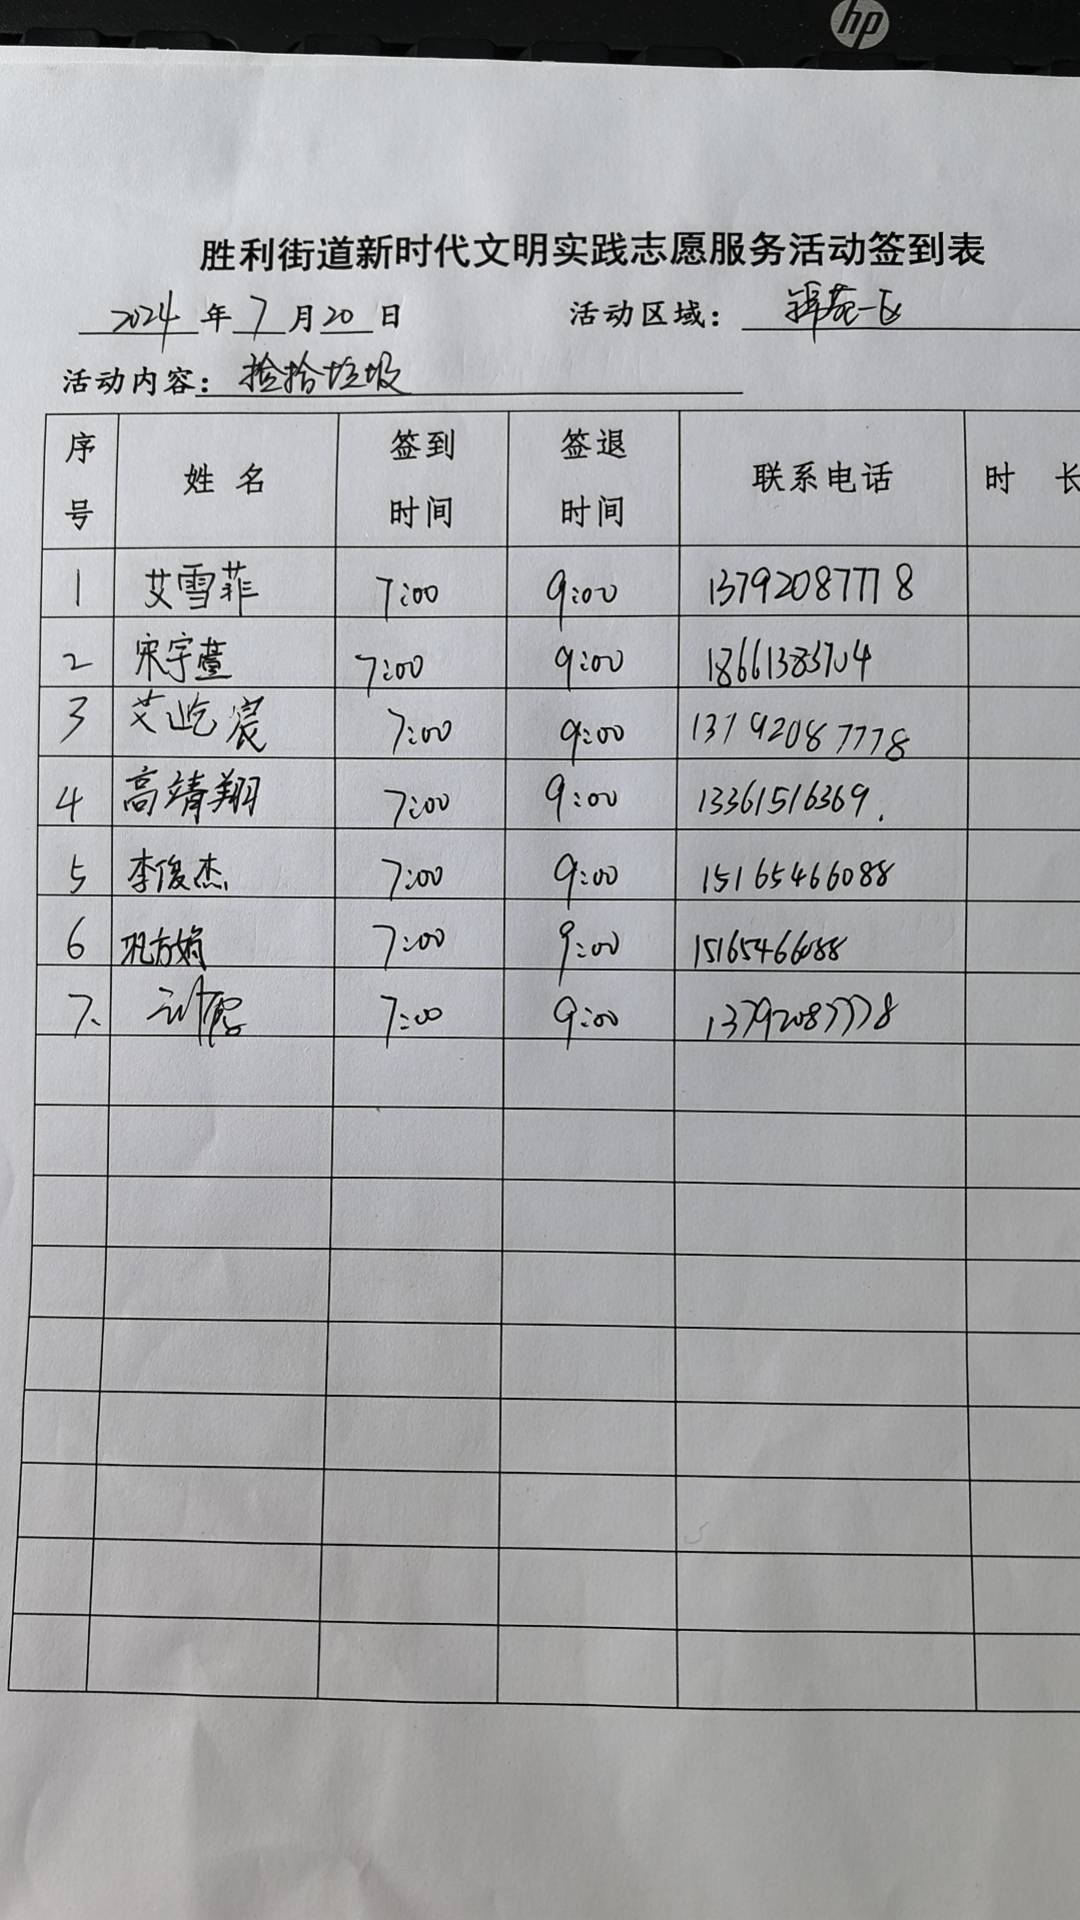 hp
胜利街道新时代文明实践志愿服务活动签到表
2024年7月20日 活动区域：锦苑一区
活动内容：捡拾垃圾
序号 姓名 签到时间 签退时间 联系电话 时长
1 艾雪菲 7:00 9:00 13792087778
2 宋宇萱 7:00 9:00 18661383704
3 艾屹宸 7:00 9:00 13792087778
4 高靖翔 7:00 9:00 13361516369.
5 李俊杰 7:00 9:00 15165466088
6 巩方娟 7:00 9:00 15165466088
7、 7:00 9:00 13792087778